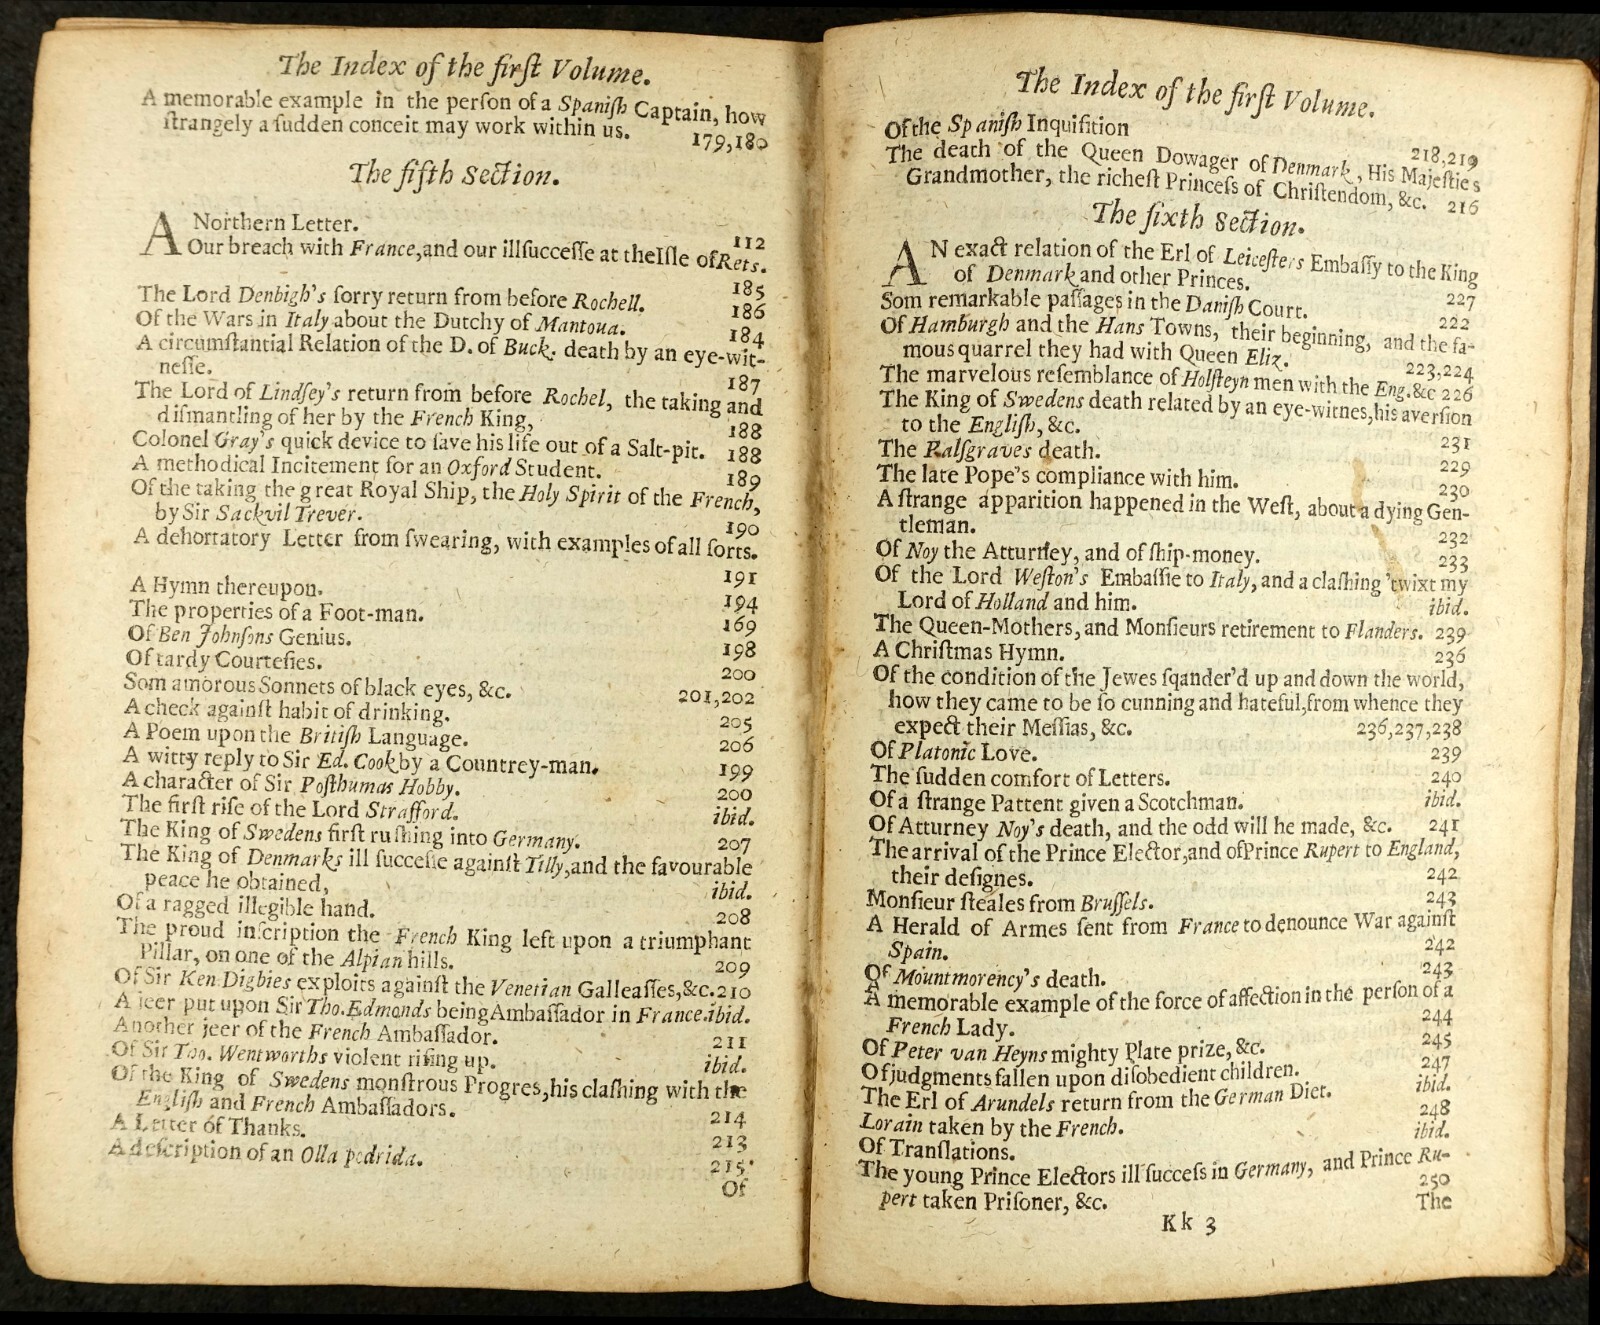 The Index of the firſt Volume.
A memorable example in the perſon of a Spaniſh Captain, how
ſtrangely a ſudden conceit may work within us. 179,180
The fifth Section.
A Northern Letter. 112
Our breach with France,and our illſucceſſe at theIſle ofRets.
185
The Lord Denbigh's ſorry return from before Rochell. 186
Of the Wars in Italy about the Dutchy of Mantoua. 184
A circumſtantial Relation of the D. of Buck. death by an eye-wit-
neſſe. 187
The Lord of Lindſey's return from before Rochel, the taking and
diſmantling of her by the French King, 188
Colonel Gray's quick device to ſave his life out of a Salt-pit. 188
A methodical Incitement for an Oxford Student. 189
Of the taking the great Royal Ship, the Holy Spirit of the French,
by Sir Sackvil Trever. 190
A dehortatory Letter from ſwearing, with examples of all ſorts.
191
A Hymn thereupon. 194
The properties of a Foot-man. 169
Of Ben Johnſons Genius. 198
Of tardy Courteſies. 200
Som amorous Sonnets of black eyes, &c. 201,202
A check againſt habit of drinking. 205
A Poem upon the Britiſh Language. 206
A witty reply to Sir Ed. Cook by a Countrey-man. 199
A character of Sir Poſthumas Hobby. 200
The firſt riſe of the Lord Strafford. ibid.
The King of Swedens firſt ruſhing into Germany. 207
The King of Denmarks ill ſucceſſe againſt Tilly,and the favourable
peace he obtained, ibid.
Of a ragged illegible hand. 208
The proud inſcription the French King left upon a triumphant
Pillar, on one of the Alpian hills. 209
Of Sir Ken Digbies exploits againſt the Venetian Galleaſſes,&c.210
A jeer put upon Sir Tho.Edmonds being Ambaſſador in France.ibid.
Another jeer of the French Ambaſſador. 211
Of Sir Tho. Wentworths violent riſing up. ibid.
Of the King of Swedens monſtrous Progres,his claſhing with the
Engliſh and French Ambaſſadors. 214
A Letter of Thanks. 213
A deſcription of an Olla podrida. 215
Of
The Index of the firſt Volume.
Of the Spaniſh Inquiſition 218,219
The death of the Queen Dowager of Denmark, His Majeſties
Grandmother, the richeſt Princeſs of Chriſtendom, &c. 216
The ſixth Section.
AN exact relation of the Erl of Leiceſters Embaſſy to the King
of Denmark and other Princes. 227
Som remarkable paſſages in the Daniſh Court. 222
Of Hamburgh and the Hans Towns, their beginning, and the fa-
mous quarrel they had with Queen Eliz. 223,224
The marvelous reſemblance of Holſteyn men with the Eng.&c 226
The King of Swedens death related by an eye-witnes,his averſion
to the Engliſh, &c. 231
The Palſgraves death. 229
The late Pope's compliance with him. 230
A ſtrange apparition happened in the Weſt, about a dying Gen-
tleman. 232
Of Noy the Atturney, and of ſhip-money. 233
Of the Lord Weſton's Embaſſie to Italy, and a claſhing 'twixt my
Lord of Holland and him. ibid.
The Queen-Mothers, and Monſieurs retirement to Flanders. 239
A Chriſtmas Hymn. 236
Of the condition of the Jewes ſqander'd up and down the world,
how they came to be ſo cunning and hateful,from whence they
expect their Meſſias, &c. 236,237,238
Of Platonic Love. 239
The ſudden comfort of Letters. 240
Of a ſtrange Pattent given a Scotchman. ibid.
Of Atturney Noy's death, and the odd will he made, &c. 241
The arrival of the Prince Elector,and of Prince Rupert to England,
their deſignes. 242
Monſieur ſteales from Bruſſels. 243
A Herald of Armes ſent from France to denounce War againſt
Spain. 242
Of Mountmorency's death. 243
A memorable example of the force of affection in the perſon of a
French Lady. 244
Of Peter van Heyns mighty Plate prize, &c. 245
Of judgments fallen upon diſobedient children. 247
The Erl of Arundels return from the German Diet. ibid.
Lorain taken by the French. 248
Of Tranſlations. ibid.
The young Prince Electors ill ſucceſs in Germany, and Prince Ru-
pert taken Priſoner, &c. 250
The
Kk 3